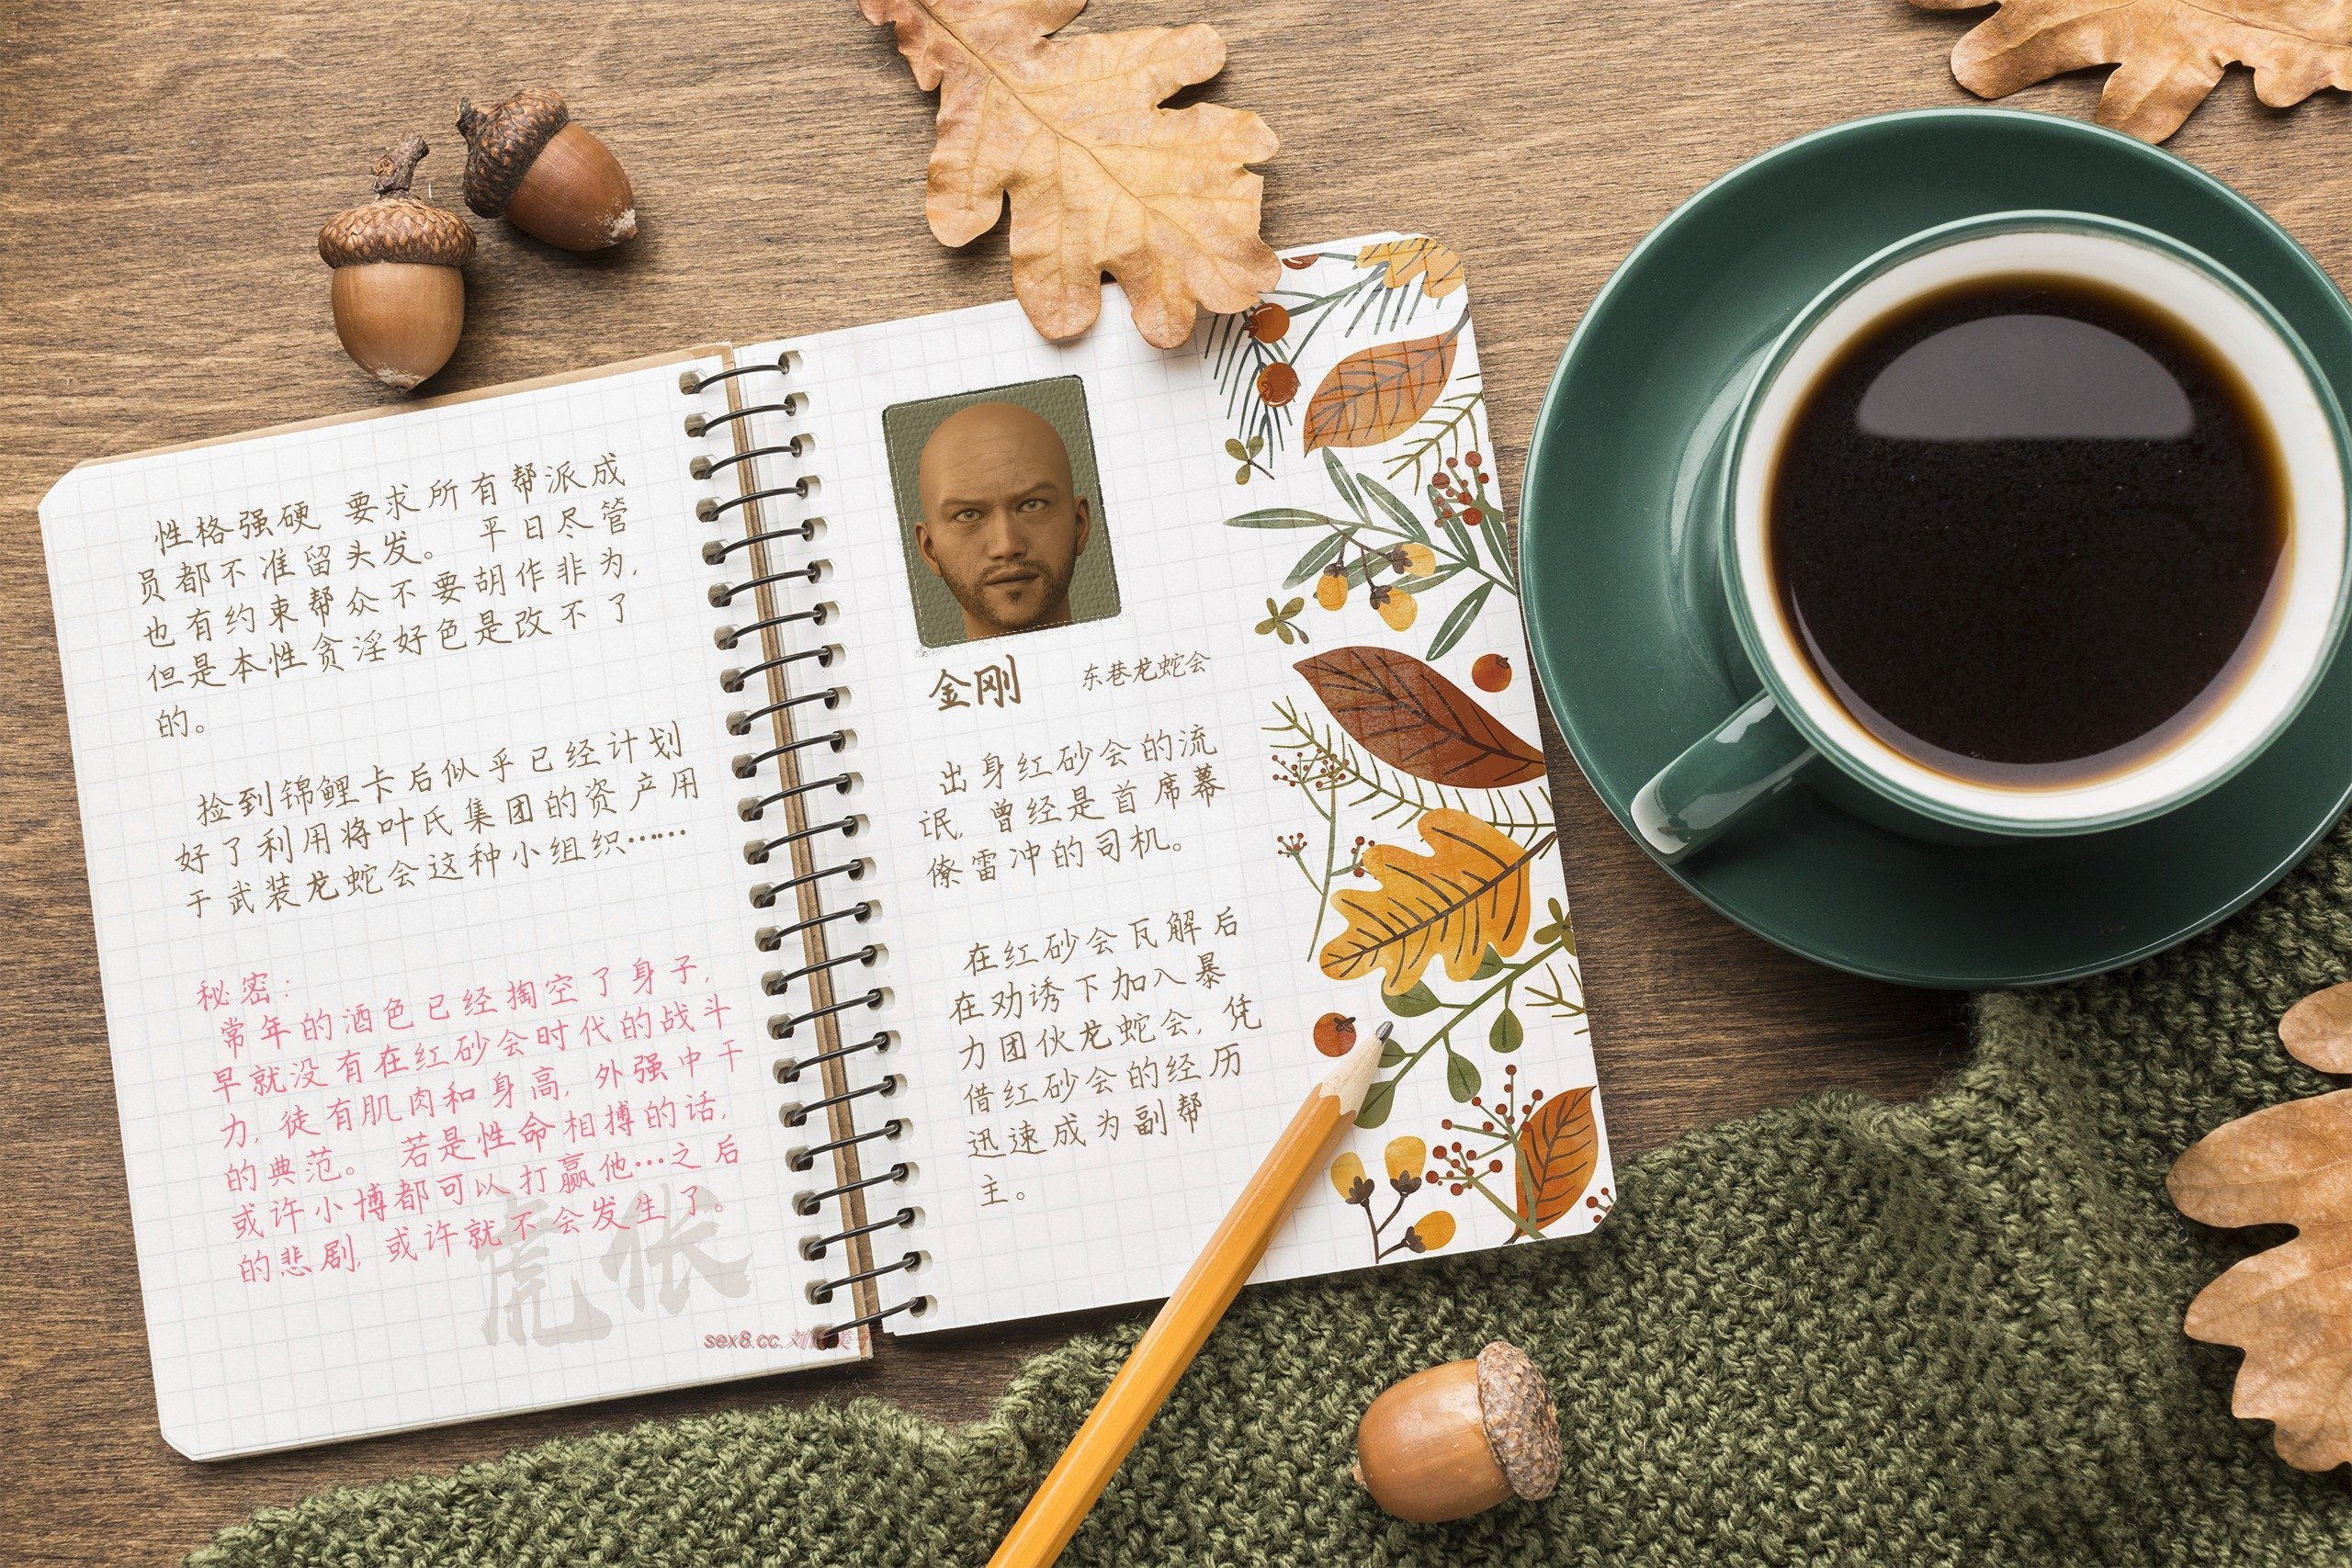 性格强硬 要求所有帮派成
员都不准留头发。 平日尽管
也有约束帮众不要胡作非为,
但是本性贪淫好色是改不了
的。
捡到锦鲤卡后似乎已经计划
好了利用将叶氏集团的资产用
于武装龙蛇会这种小组织……
秘密:
常年的酒色已经掏空了身子,
早就没有在红砂会时代的战斗
力, 徒有肌肉和身高, 外强中干
的典范。 若是性命相搏的话,
或许小博都可以打赢他…之后
的悲剧, 或许就不会发生了。
虎伥
sex8.cc.
金刚
东巷龙蛇会
出身红砂会的流
氓, 曾经是首席幕
僚雷冲的司机。
在红砂会瓦解后
在劝诱下加入暴
力团伙龙蛇会, 凭
借红砂会的经历
迅速成为副帮
主。